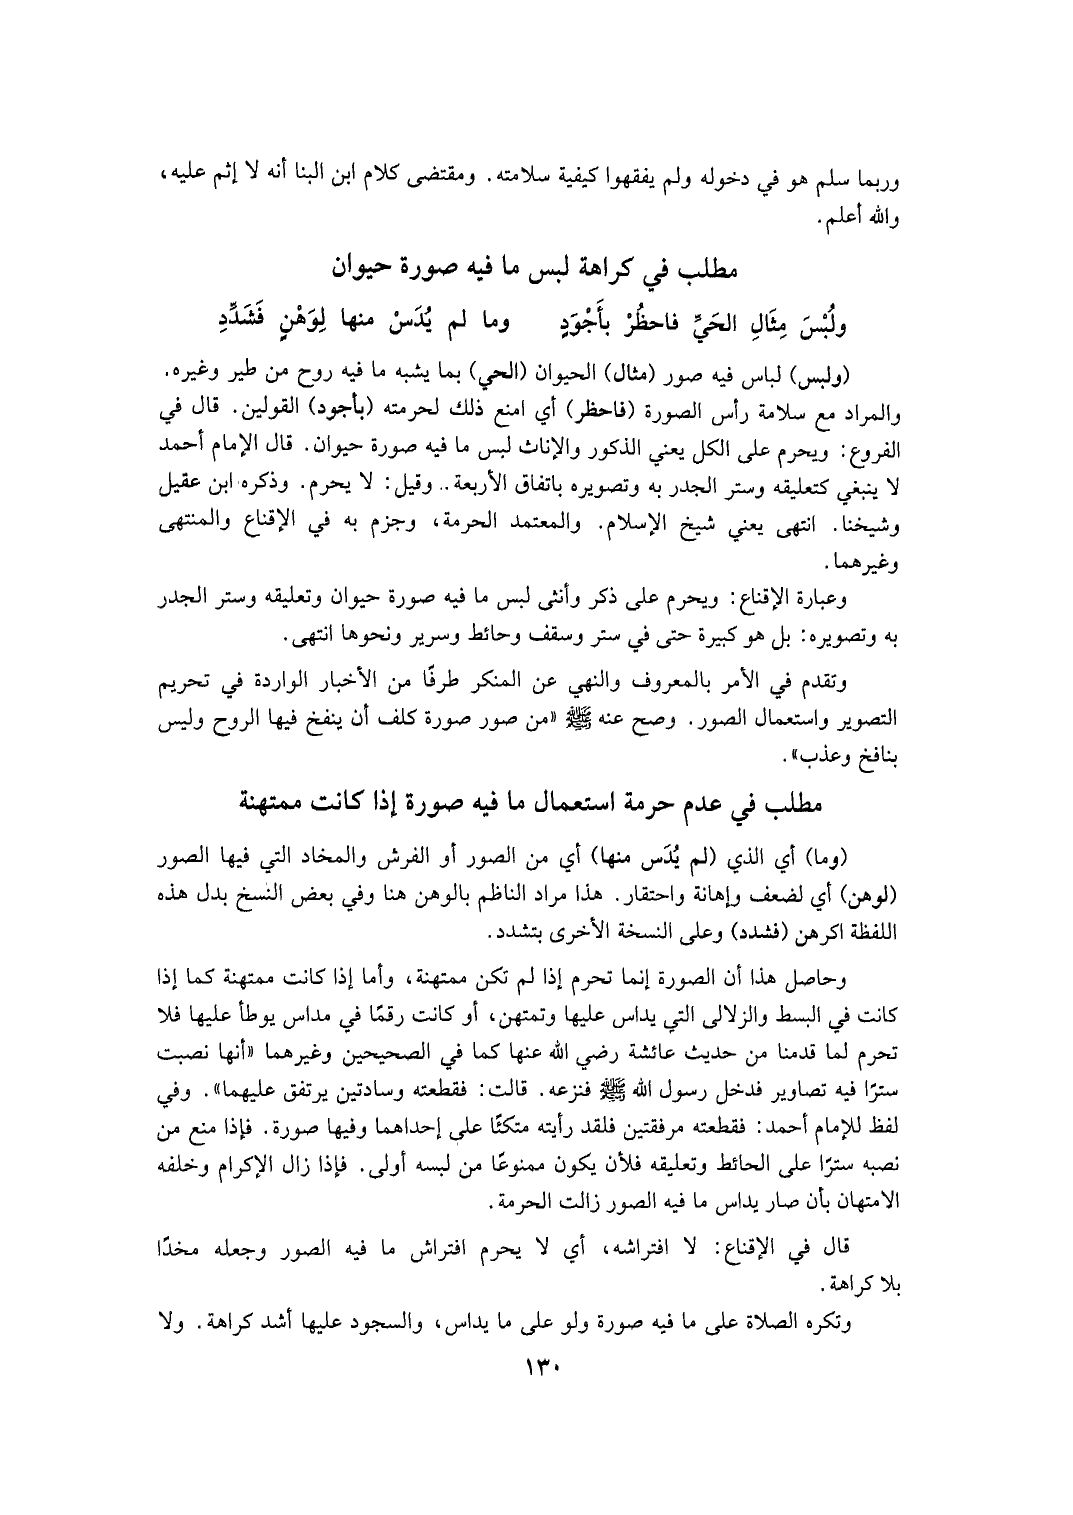 وربما سلم هو في دخوله ولم يفقهوا كيفية سلامته. ومقتضى كلام ابن البنا أنه لا إثم عليه،
والله أعلم.
مطلب في كراهة لبس ما فيه صورة حيوان
ولُبْسَ مِثَالِ الحَيِّ فاحظُرْ بأَجْوَدٍ وما لم يُدَسْ منها لِوَهْنٍ فَشَدِّدِ
(ولبس) لباس فيه صور (مثال) الحيوان (الحي) بما يشبه ما فيه روح من طير وغيره.
والمراد مع سلامة رأس الصورة (فاحظر) أي امنع ذلك لحرمته (بأجود) القولين. قال في
الفروع: ويحرم على الكل يعني الذكور والإناث لبس ما فيه صورة حيوان. قال الإمام أحمد
لا ينبغي كتعليقه وستر الجدر به وتصويره باتفاق الأربعة.. وقيل: لا يحرم. وذكره ابن عقيل
وشيخنا. انتهى يعني شيخ الإسلام. والمعتمد الحرمة، وجزم به في الإقناع والمنتهى
وغيرهما.
وعبارة الإقناع: ويحرم على ذكر وأنثى لبس ما فيه صورة حيوان وتعليقه وستر الجدر
به وتصويره: بل هو كبيرة حتى في ستر وسقف وحائط وسرير ونحوها انتهى.
وتقدم في الأمر بالمعروف والنهي عن المنكر طرفًا من الأخبار الواردة في تحريم
التصوير واستعمال الصور. وصح عنه ﷺ «من صور صورة كلف أن ينفخ فيها الروح وليس
بنافخ وعذب».
مطلب في عدم حرمة استعمال ما فيه صورة إذا كانت ممتهنة
(وما) أي الذي (لم يُدَس منها) أي من الصور أو الفرش والمخاد التي فيها الصور
(لوهن) أي لضعف وإهانة واحتقار. هذا مراد الناظم بالوهن هنا وفي بعض النسخ بدل هذه
اللفظة اكرهن (فشدد) وعلى النسخة الأخرى بتشدد.
وحاصل هذا أن الصورة إنما تحرم إذا لم تكن ممتهنة، وأما إذا كانت ممتهنة كما إذا
كانت في البسط والزلالى التي يداس عليها وتمتهن، أو كانت رقمًا في مداس يوطأ عليها فلا
تحرم لما قدمنا من حديث عائشة رضي الله عنها كما في الصحيحين وغيرهما «أنها نصبت
سترًا فيه تصاوير فدخل رسول الله ﷺ فنزعه. قالت: فقطعته وسادتين يرتفق عليهما». وفي
لفظ للإمام أحمد: فقطعته مرفقتين فلقد رأيته متكئًا على إحداهما وفيها صورة. فإذا منع من
نصبه سترًا على الحائط وتعليقه فلأن يكون ممنوعًا من لبسه أولى. فإذا زال الإكرام وخلفه
الامتهان بأن صار يداس ما فيه الصور زالت الحرمة.
قال في الإقناع: لا افتراشه، أي لا يحرم افتراش ما فيه الصور وجعله مخدًا
بلا كراهة.
وتكره الصلاة على ما فيه صورة ولو على ما يداس، والسجود عليها أشد كراهة. ولا
١٣٠